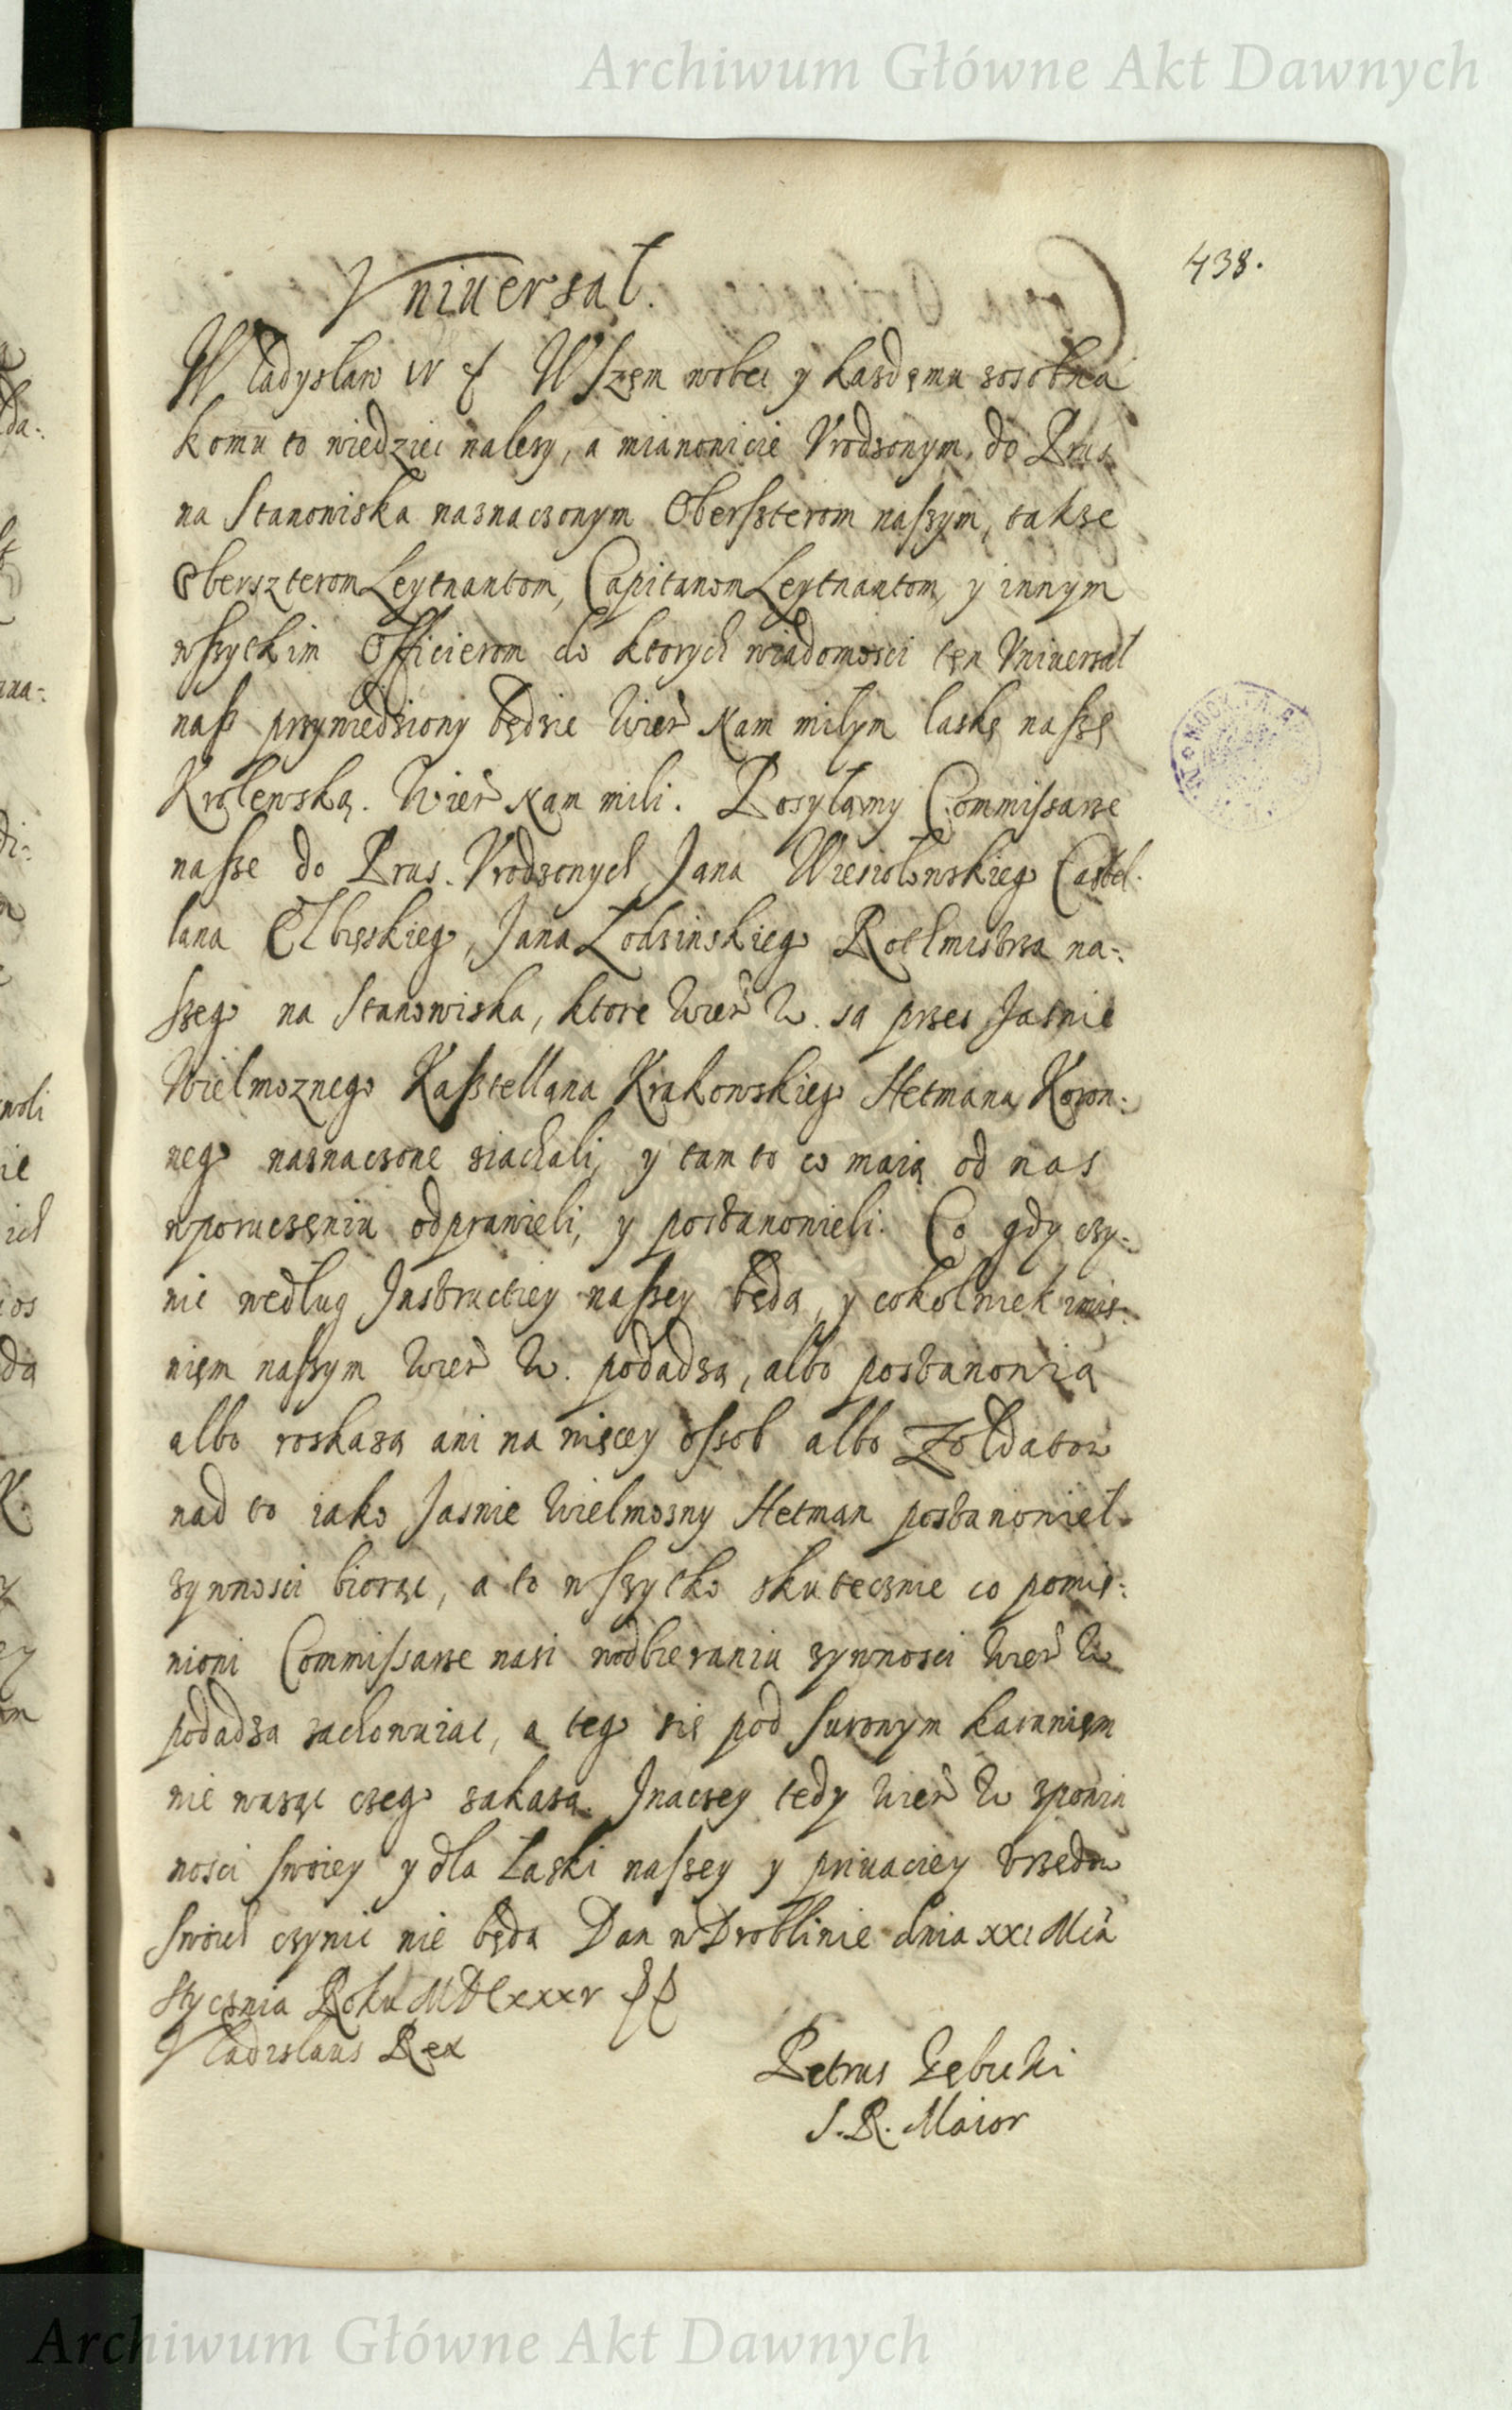 Archiwum Główne Akt Dawnych
438.
Vniuersał.
Władysław IV Wszem wobec y kazdęmu zosobna
komu to wiedziec nalezy, a mianowicie Vrodzonym, do Prus
na Stanowiska naznaczonym Oberszterom naszym, takze
Oberszterom Leytnantom, Capitanom Leytnantom, y innym
wszytkim Officierom do ktorych wiadomosci tęn Vniuersał
nasz przywiedziony będzie Wier Nam miłym łaskę naszę
Krolewską. Wier Nam mili. Posyłamy Commissarze
nasze do Prus. Vrodzonych Jana Wiesiołowskieg Castel-
lana Elbięskieg, Jana Łodzinskieg Rothmistrza na-:
szeg na Stanowiska, ktore Wier W. są przez Jasnie
Wielmoznego Kasztellana Krakowskieg Hetmana Koron-:
neg naznaczone ziachali, y tam to co maią od nas
wporuczęniu odprawieli, y postanowieli. Co gdy czy-:
nic według Instructiey naszey będą, y cokolwiek imię-:
nięm naszym Wier W. podadzą, albo postanowią
albo roskazą ani na więcey ossob albo Zołdatow
nad to iako Jasnie Wielmozny Hetman postanowieł
zywnosci biorąc, a to wszytko skutecznie co pomię-:
nioni Commissarze nasi wodbieraniu zywnosci Wier W
podadzą zachowuiac, a teg się pod surowym karanięm
nie waząc czeg zakazą. Inaczey tedy Wier W zpowin
nosci swoiey y dla Łaski naszey y priuaciey Vrzędow
swoich czynic nie będą Dan w Droblinie dnia XXI Mca
Stycznia Roku MDCXXXV
Vladislaus Rex
Petrus Gębicki
S. R. Maior
Archiwum Główne Akt Dawnych